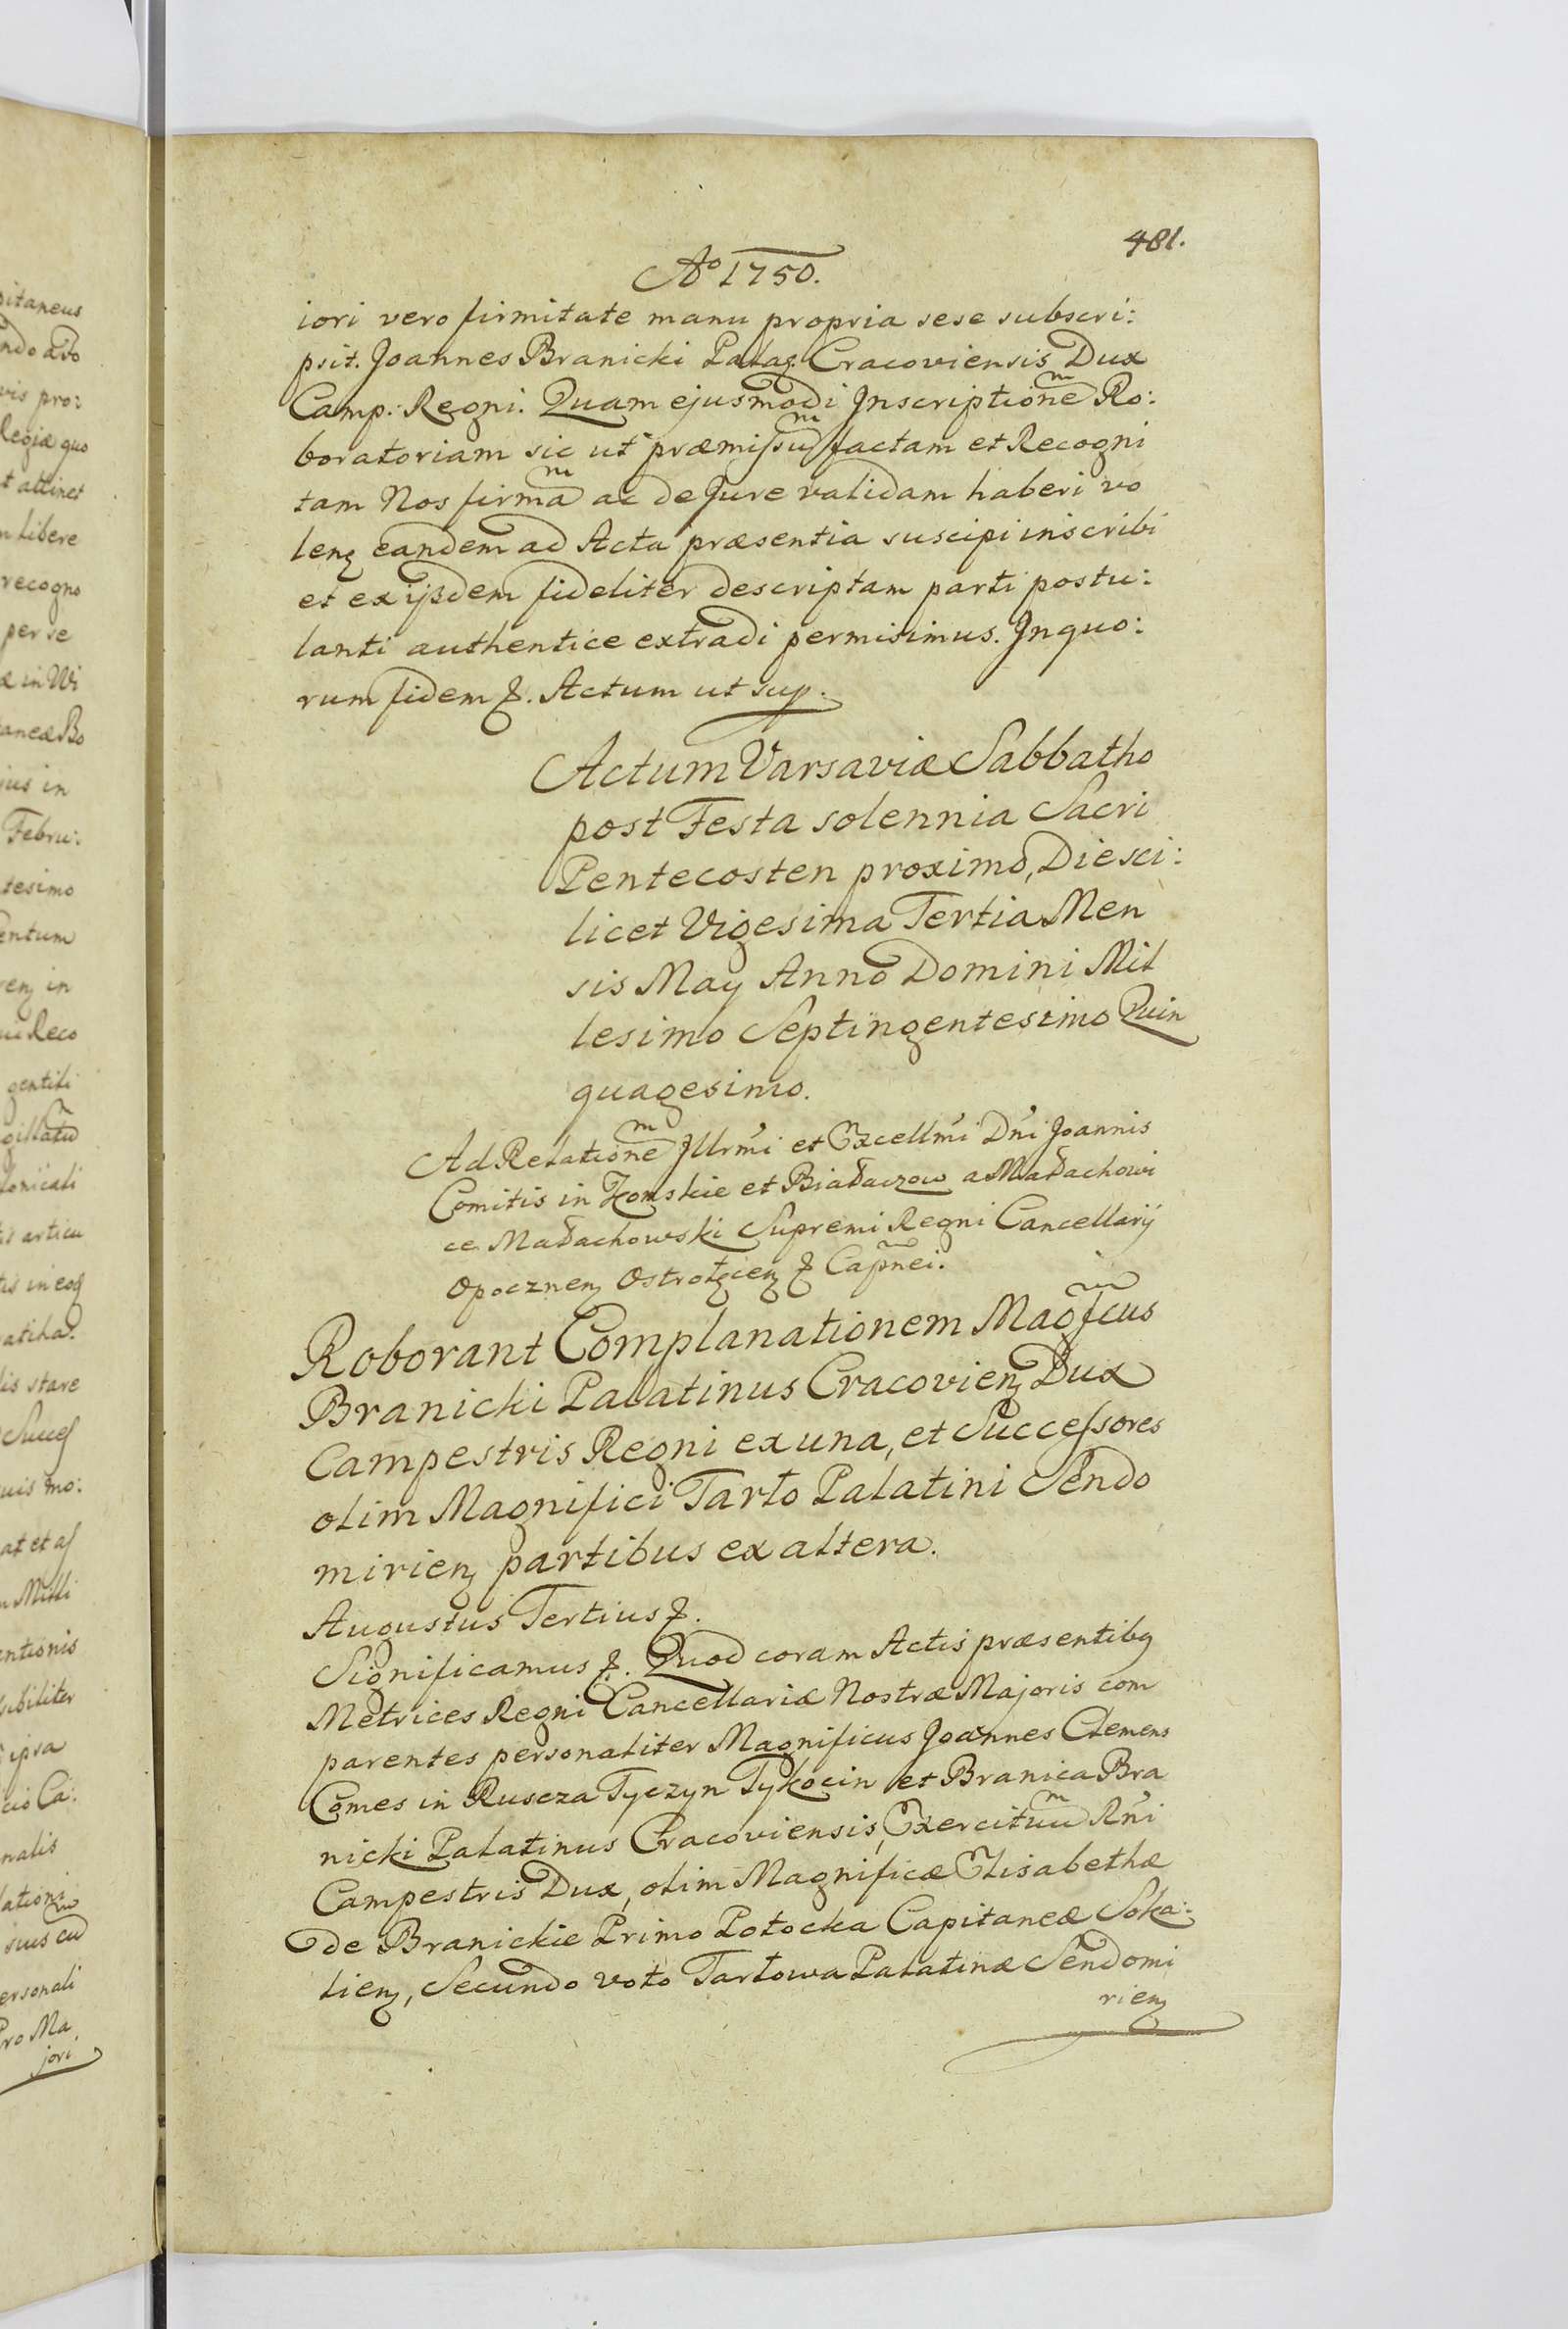 481.
Aº 1750.
iori vero firmitate manu propria sese subscri:
psit. Joannes Branicki Palaꝫ. Cracoviensis Dux
Camp: Regni. Quam ejusmodi Inscriptioneͫ Ro:
boratoriam sic ut præmissuͫ factam et Recogni
tam Nos firmaͫ ac de Jure validam haberi vo
lenꝫ eandem ad Acta præsentia suscipi inscribi
et ex ijsdem fideliter descriptam parti postu:
lanti authentice extradi permisimus. Inquo:
rum fidem &. Actum ut sup.
Actum Varsaviæ Sabbatho
post Festa solennia Sacri
Pentecosten proximo, Die sci:
licet Vigesima Tertia Men
sis May Anno Domini Mil
lesimo Septingentesimo Quin
quagesimo.
Ad Relationeͫ Illrmi et Excellmi Dni Joannis
Comitis in Konskie et Białaczow a Małachowi
ce Małachowski Supremi Regni Cancellarij
Opocznenꝫ Ostrołꝫcienꝫ & Capnei.
Roborant Complanationem Magfcus
Branicki Palatinus Cracovienꝫ Dux
Campestris Regni ex una, et Successores
olim Magnifici Tarło Palatini Sendo
mirienꝫ partibus ex altera.
Augustus Tertius &.
Significamus &. Quod coram Actis præsentibꝫ
Metrices Regni Cancellariæ Nostræ Majoris com
parentes personaliter Magnificus Joannes Clemens
Comes in Ruscza Tyczyn Tykocin et Branica Bra
nicki Palatinus Cracoviensis, Exercituuͫ Rni
Campestris Dux, olim Magnificæ Elisabethæ
de Branickie Primo Potocka Capitaneæ Soka:
lienꝫ, Secundo voto Tarłowa Palatinæ Sendomi
rienꝫ